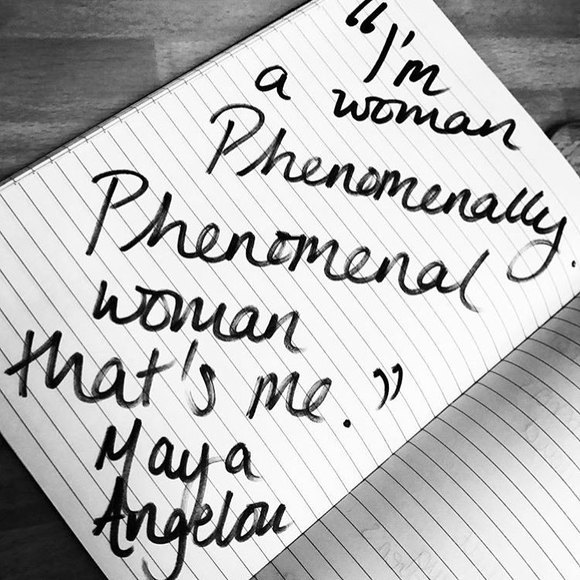 "I'm
a woman
Phenomenally.
Phenomenal
woman
that's me."
Maya
Angelou